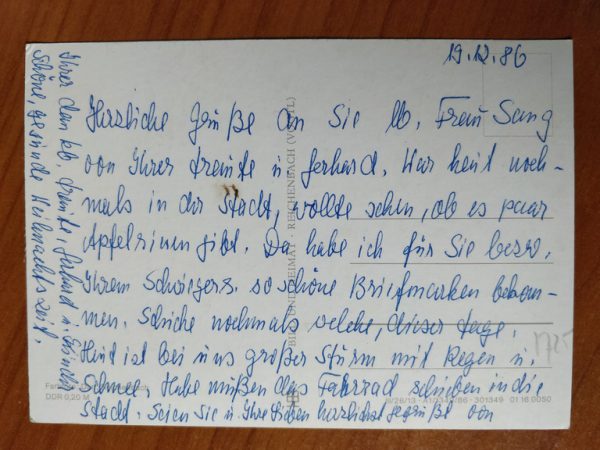 19.12.86
Herzliche Grüße an Sie lb. Frau Sang
von Ihrer Traute u. Gerhard. War heut noch-
mals in der Stadt, wollte sehen, ob es paar
Apfelsinen gibt. Da habe ich für Sie bezw.
Ihrem Schwiegers. so schöne Briefmarken bekom-
men. Schicke nochmals welche, dieser Tage.
Heut ist bei uns großer Sturm mit Regen u.
Schnee. Habe müßen das Fahrrad schieben in die
Stadt. Seien Sie u. Ihre Lieben herzlichst gegrüßt von
Ihrer dankb. Traute, Gerhard u.
schöne, gesunde Weihnachtszeit.
BILD UND HEIMAT · REICHENBACH (VOGTL)
DDR 0,20 M
301349 01 16 0050